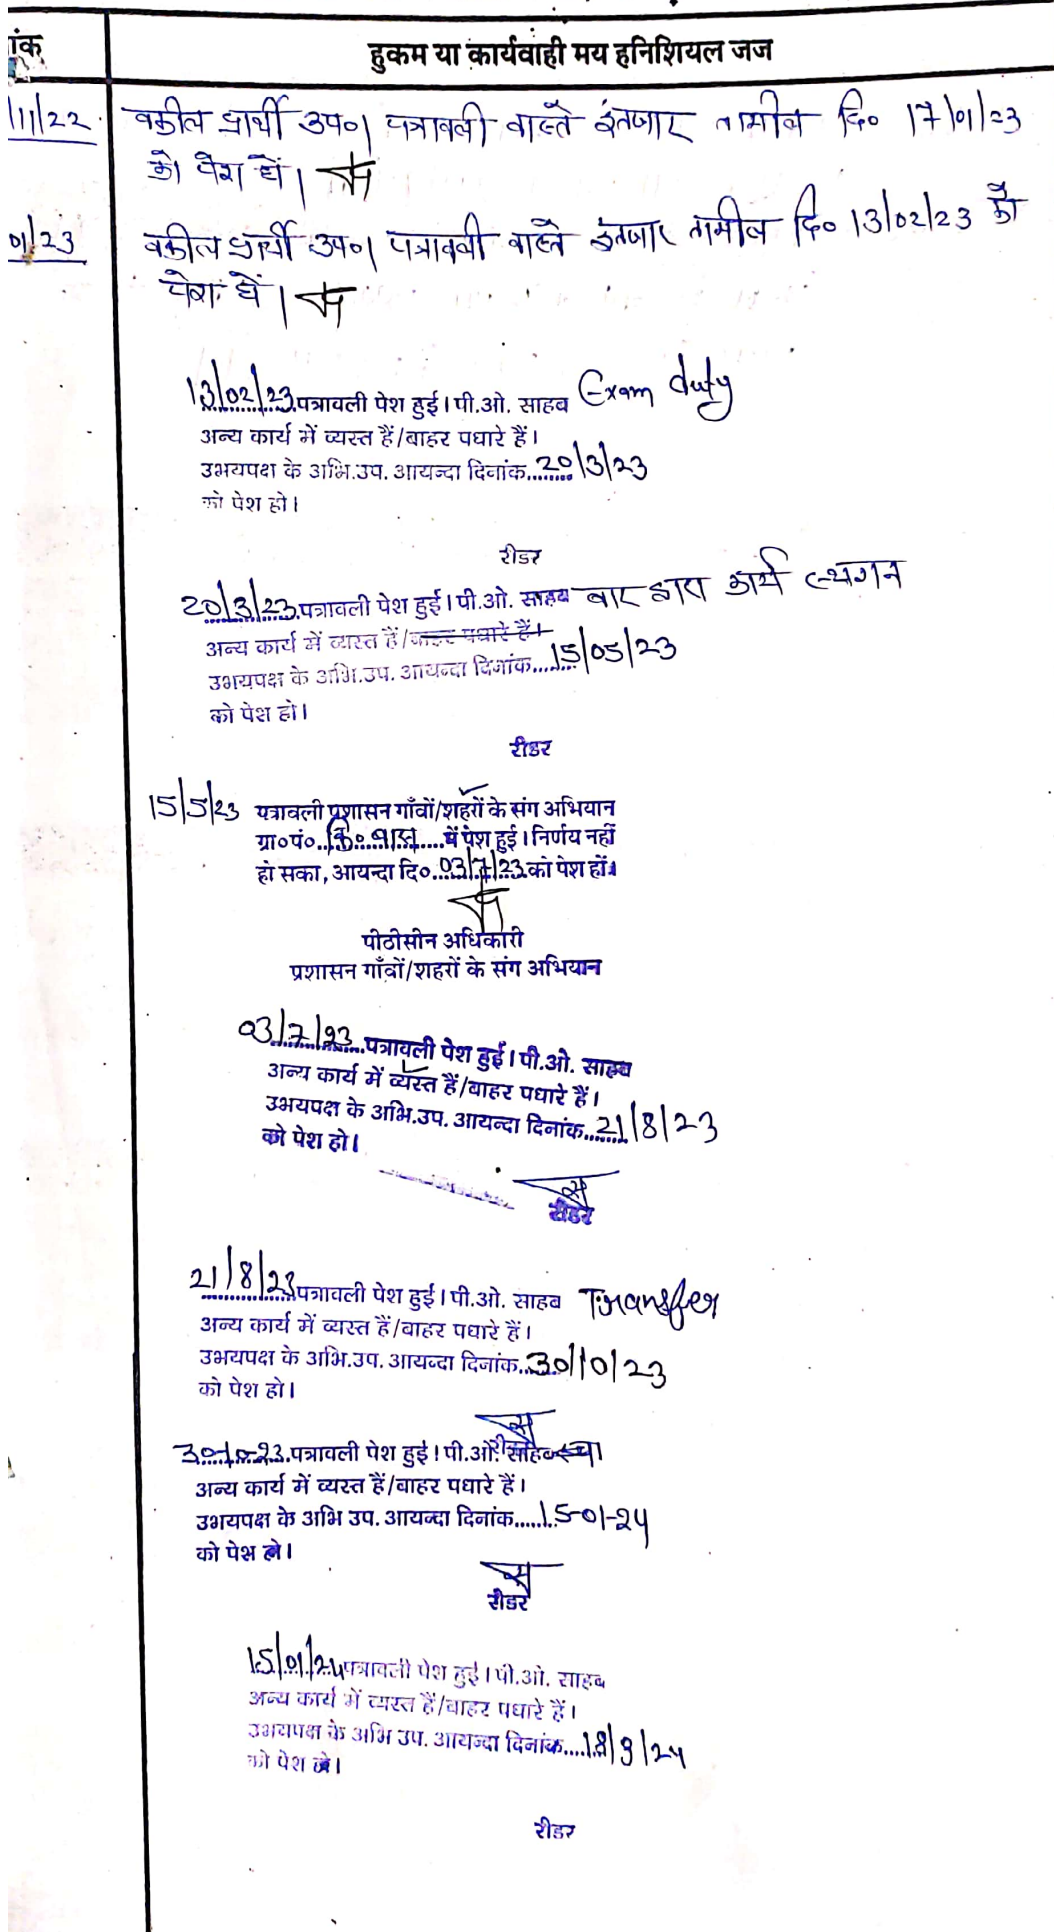 ांक
हुकम या कार्यवाही मय हनिशियल जज
/11/22 वकील प्रार्थी उप०। पत्रावली वास्ते इंतजार तामील दि० 17/01/23
को पेश हों।
01/23 वकील प्रार्थी उप०। पत्रावली वास्ते इंतजार तामील दि० 13/02/23 को
पेश हों।
13/02/23 पत्रावली पेश हुई। पी.ओ. साहब Exam duty
अन्य कार्य में व्यस्त हैं/बाहर पधारे हैं।
उभयपक्ष के अभि.उप. आयन्दा दिनांक........20/3/23
को पेश हो।
रीडर
20/3/23 पत्रावली पेश हुई। पी.ओ. साहब बार द्वारा कार्य स्थगन
अन्य कार्य में व्यस्त हैं/बाहर पधारे हैं।
उभयपक्ष के अभि.उप. आयन्दा दिनांक.......15/05/23
को पेश हो।
रीडर
15/5/23 पत्रावली प्रशासन गाँवों/शहरों के संग अभियान
ग्रा०पं०.............में पेश हुई। निर्णय नहीं
हो सका, आयन्दा दि०..03/7/23 को पेश हों।
पीठासीन अधिकारी
प्रशासन गाँवों/शहरों के संग अभियान
03/7/23 पत्रावली पेश हुई। पी.ओ. साहब
अन्य कार्य में व्यस्त हैं/बाहर पधारे हैं।
उभयपक्ष के अभि.उप. आयन्दा दिनांक.......21/8/23
को पेश हो।
रीडर
21/8/23 पत्रावली पेश हुई। पी.ओ. साहब Transfer
अन्य कार्य में व्यस्त हैं/बाहर पधारे हैं।
उभयपक्ष के अभि.उप. आयन्दा दिनांक...30/10/23
को पेश हो।
रीडर
30-10-23 पत्रावली पेश हुई। पी.ओ. साहब
अन्य कार्य में व्यस्त हैं/बाहर पधारे हैं।
उभयपक्ष के अभि उप. आयन्दा दिनांक......15-01-24
को पेश हो।
रीडर
15/01/24 पत्रावली पेश हुई। पी.ओ. साहब
अन्य कार्य में व्यस्त हैं/बाहर पधारे हैं।
उभयपक्ष के अभि उप. आयन्दा दिनांक....18/3/24
को पेश हो।
रीडर